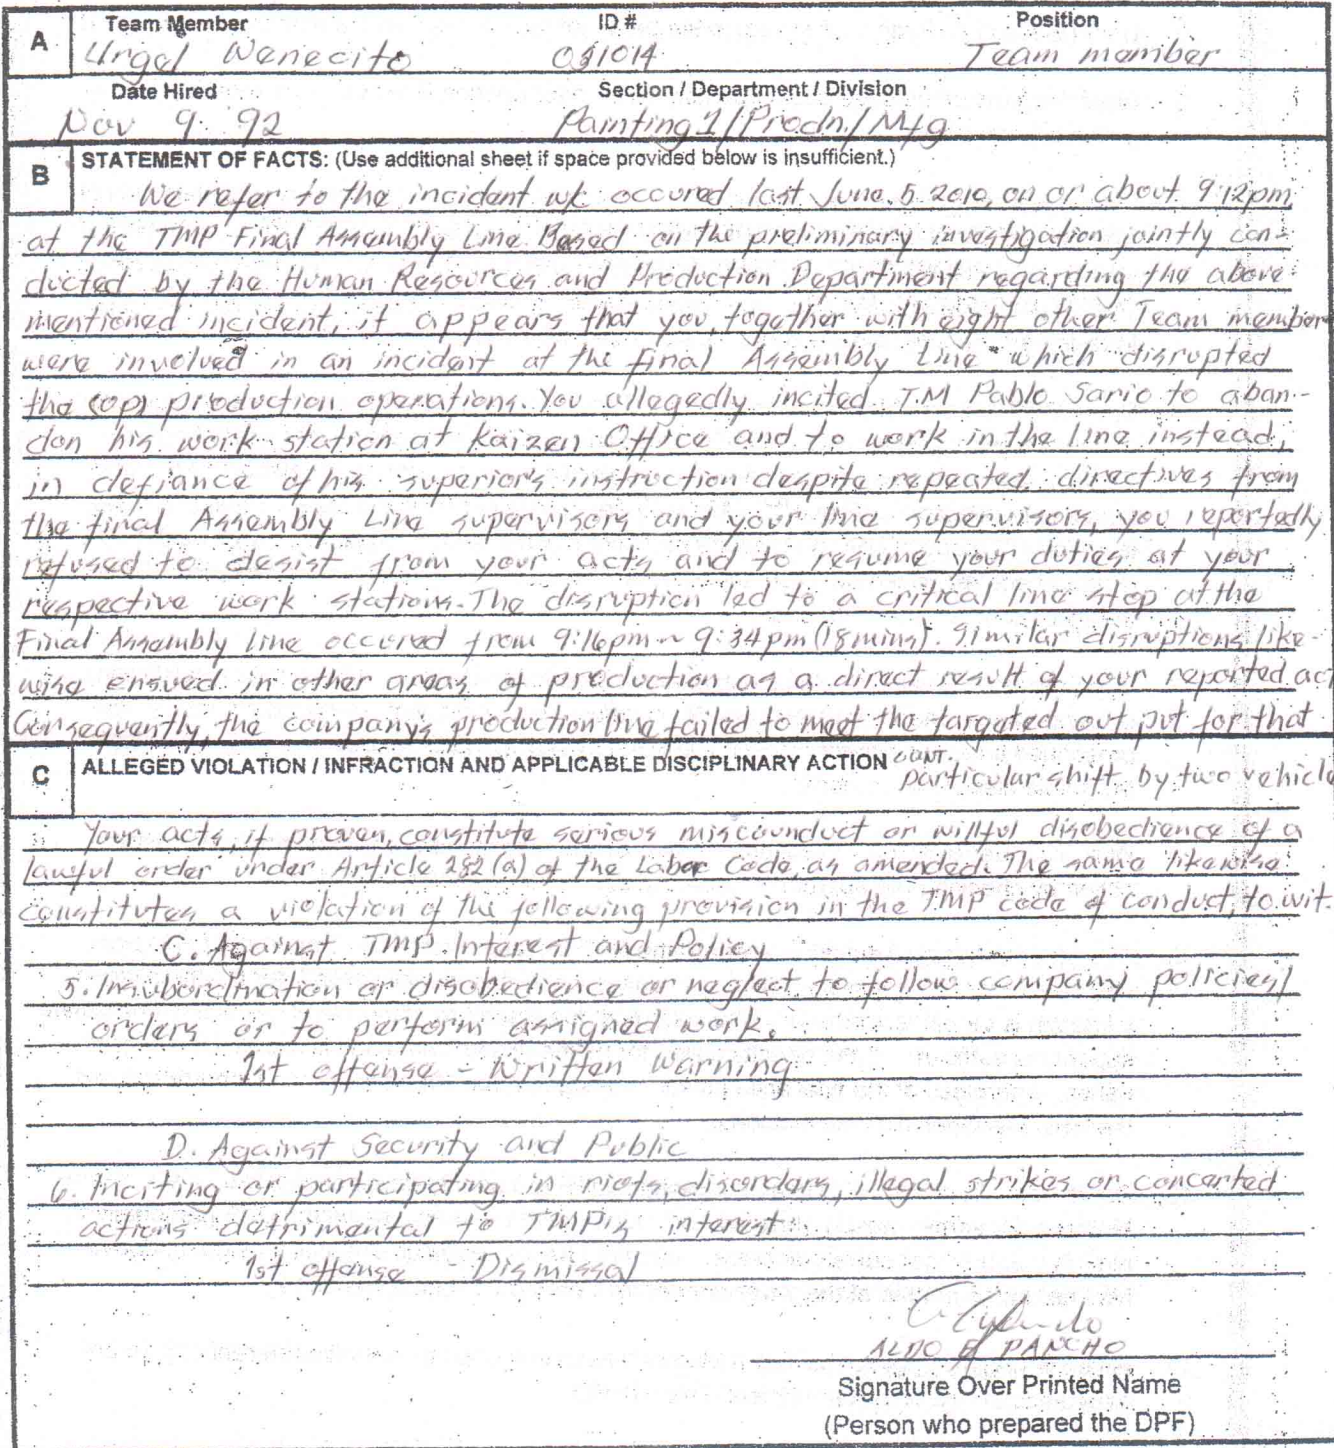 A
Team Member ID # Position
Urgel Wenecito 031014 Team member
Date Hired Section / Department / Division
Nov 9. 92 Painting 1/Prodn/Mfg
B
STATEMENT OF FACTS: (Use additional sheet if space provided below is insufficient.)
We refer to the incident wc occured last June. 5. 2010, on or about 9:12pm,
at the TMP Final Assembly Line. Based on the preliminary investigation jointly con-
ducted by the Human Resources and Production Department regarding the above-
mentioned incident, it appears that you, together with eight other Team member
were involved in an incident at the final Assembly Line which disrupted
the production operations. You allegedly incited T.M Pablo Sario to aban-
don his work station at Kaizen Office and to work in the line instead,
in defiance of his superior's instruction despite repeated directives from
the final Assembly Line supervisors and your line supervisors, you reportedly
refused to desist from your acts and to resume your duties at your
respective work stations. The disruption led to a critical line stop at the
Final Assembly line occured from 9:16pm ~ 9:34pm (18mins). Similar disruptions like-
wise ensued in other areas of production as a direct result of your reported act
Consequently, the company's production line failed to meet the targeted out put for that
C
ALLEGED VIOLATION / INFRACTION AND APPLICABLE DISCIPLINARY ACTION CONT. particular shift by two vehicle
Your acts, if proven, constitute serious miscounduct or willful disobedience of a
lawful order under Article 282 (a) of the Labor Code, as amended. The same likewise
constitutes a violation of the following provision in the TMP code of conduct, to wit.
C. Against TMP Interest and Policy
5. Insubordination or disobedience or neglect to follow company policies/
orders or to perform assigned work.
1st offense - Written Warning
D. Against Security and Public
6. Inciting or participating in riots, disorders, illegal strikes or concerted
actions detrimental to TMP's interest
1st offense - Dismissal
ALDO PANCHO
Signature Over Printed Name
(Person who prepared the DPF)